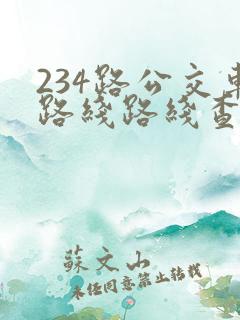 234路公交車
路线路线查
蘇文山
未经同意禁止转载